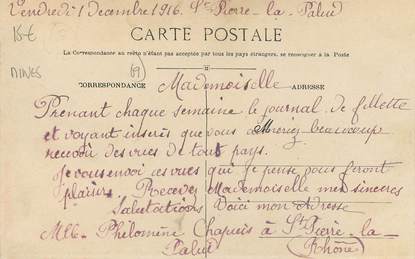 Vendredi 1 decembre 1916. St Pierre-la-Palud
15€
CARTE POSTALE
La Correspondance au recto n'étant pas acceptée par tous les pays étrangers, se renseigner à la Poste
MINES
(69)
CORRESPONDANCE
ADRESSE
Mademoiselle
Prenant chaque semaine le journal de fillette
et voyant inseris que vous aimeriez beaucoup
recevoir des vues de tout pays.
Je vous envoi ces vues qui je pense vous feront
plaisir. Recevez Mademoiselle mes sinceres
Salutations Voici mon Adresse
Mlle Philomène Chapuis à St Pierre-la-
Palud (Rhône)